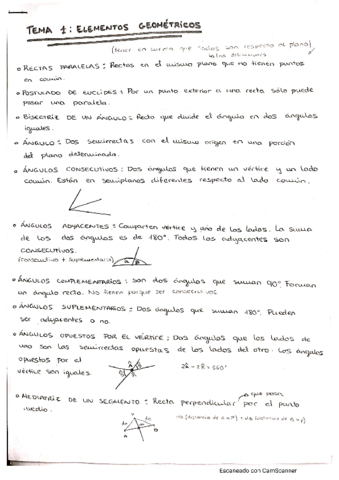 TEMA 1: ELEMENTOS GEOMÉTRICOS
(Tener en cuenta que todos son respecto al plano)
o RECTAS PARALELAS: Rectas en el mismo plano que no tienen puntos
en común.
o POSTULADO DE EUCLIDES: Por un punto exterior a una recta sólo puede
pasar una paralela.
o BISECTRIZ DE UN ÁNGULO: Recta que divide el ángulo en dos ángulos
iguales.
o ÁNGULO: Dos semirrectas con el mismo origen en una porción
del plano determinada.
o ÁNGULOS CONSECUTIVOS: Dos ángulos que tienen un vértice y un lado
común. Están en semiplanos diferentes respecto al lado común.
o ÁNGULOS ADYACENTES: Comparten vértice y uno de los lados. La suma
de los dos ángulos es de 180º. Todos los adyacentes son
CONSECUTIVOS.
(consecutivo + suplementario)
o ÁNGULOS COMPLEMENTARIOS: Son dos ángulos que suman 90º. Forman
un ángulo recto. No tienen porque ser consecutivos
o ÁNGULOS SUPLEMENTARIOS: Dos ángulos que suman 180º. Pueden
ser adyacentes o no.
o ÁNGULOS OPUESTOS POR EL VÉRTICE: Dos ángulos que los lados de
uno son las semirrectas opuestas de los lados del otro. Los ángulos
opuestos por el
vértice son iguales.
o MEDIATRIZ DE UN SEGMENTO: Recta perpendicular por el punto
que pasa
medio.
Escaneado con CamScanner